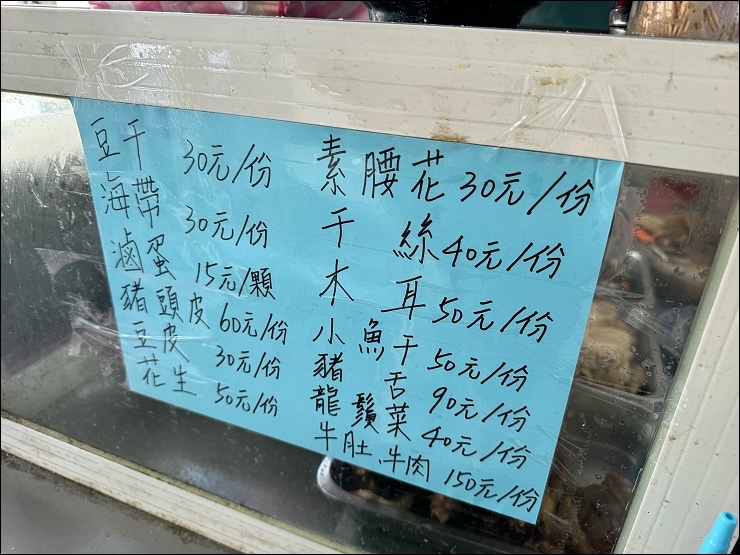 豆干 30元/份
海帶 30元/份
滷蛋 15元/顆
豬頭皮 60元/份
豆皮 30元/份
花生 50元/份
素腰花 30元/份
干絲 40元/份
木耳 50元/份
小魚干 50元/份
豬舌 90元/份
龍鬚菜 40元/份
牛肚、牛肉 150元/份